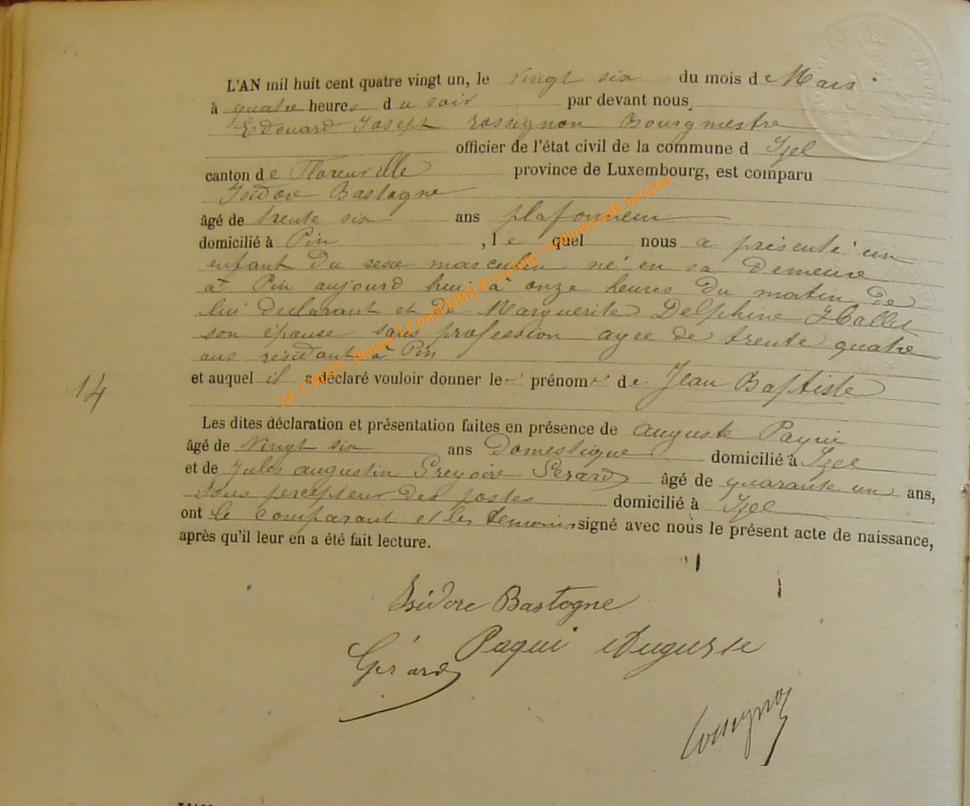 L'AN mil huit cent quatre vingt un, le vingt six du mois d Mars
à quatre heures du soir par devant nous,
Edouard Joseph Rossignon Bourgmestre
officier de l'état civil de la commune d Izel
canton de Florenville province de Luxembourg, est comparu
Isidore Bastogne
âgé de trente six ans plafonneur
domicilié à Pin, le quel nous a présenté un
enfant du sexe masculin né en sa demeure
à Pin aujourd hui à onze heures du matin de
lui déclarant et de Marguerite Delphine Hallet
son épouse sans profession agee de trente quatre
ans résidant à Pin
14
et auquel il a déclaré vouloir donner le prénom de Jean Baptiste
Les dites déclaration et présentation faites en présence de auguste Paqui
âgé de vingt six ans Domestique domicilié à Izel
et de Jules augustin Gregoire Gerard âgé de quarante un ans,
sous percepteur des postes domicilié à Izel
ont le comparant et les temoins signé avec nous le présent acte de naissance,
après qu'il leur en a été fait lecture.
Isidore Bastogne
Paqui Auguste
Gérard
Rossignon